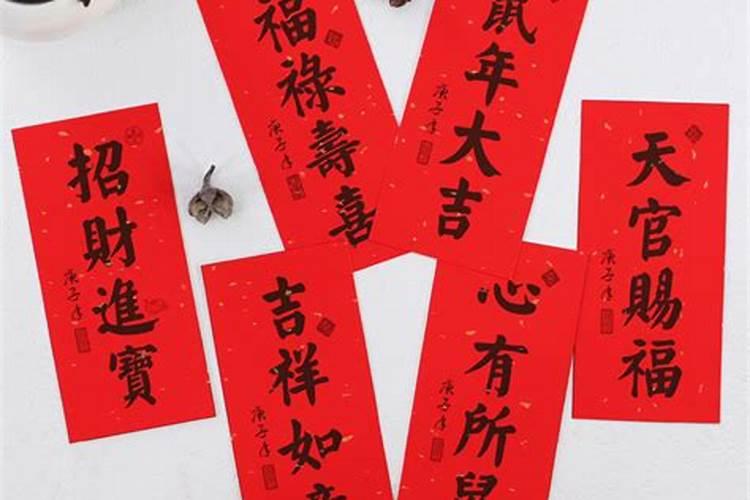 招財進寶
庚子年
福祿壽喜
庚子年
鼠年大吉
庚子年
天官賜福
庚子年
吉祥如意
庚子年
心有所
庚子年